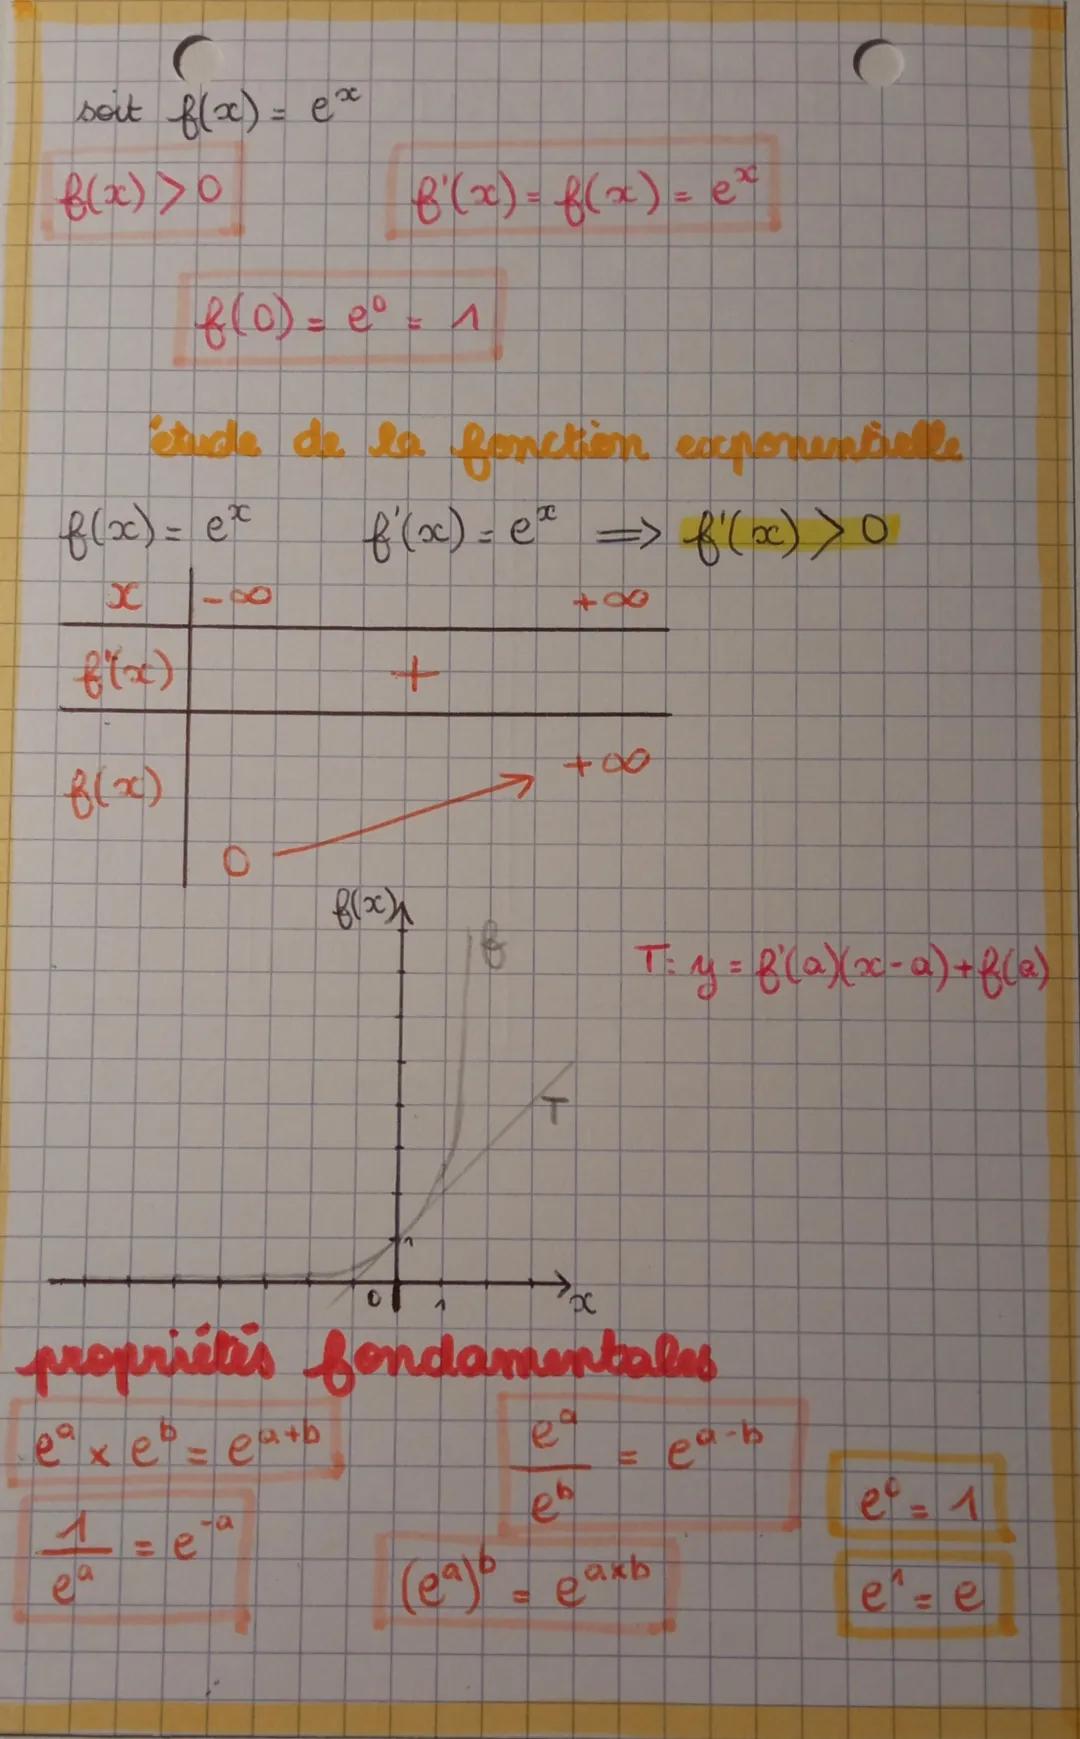 soit f(x) = eˣ
f(x) > 0
f'(x) = f(x) = eˣ
f(0) = e⁰ = 1
étude de la fonction exponentielle
f(x) = eˣ f'(x) = eˣ ⟹ f'(x) > 0
x -∞ +∞
f'(x) +
f(x) 0 +∞
f(x)
f
T: y = f'(a)(x-a)+f(a)
T
1
0 1 x
propriétés fondamentales
eᵃ × eᵇ = eᵃ⁺ᵇ
eᵃ/eᵇ = eᵃ⁻ᵇ
e⁰ = 1
1/eᵃ = e⁻ᵃ
(eᵃ)ᵇ = eᵃˣᵇ
e¹ = e